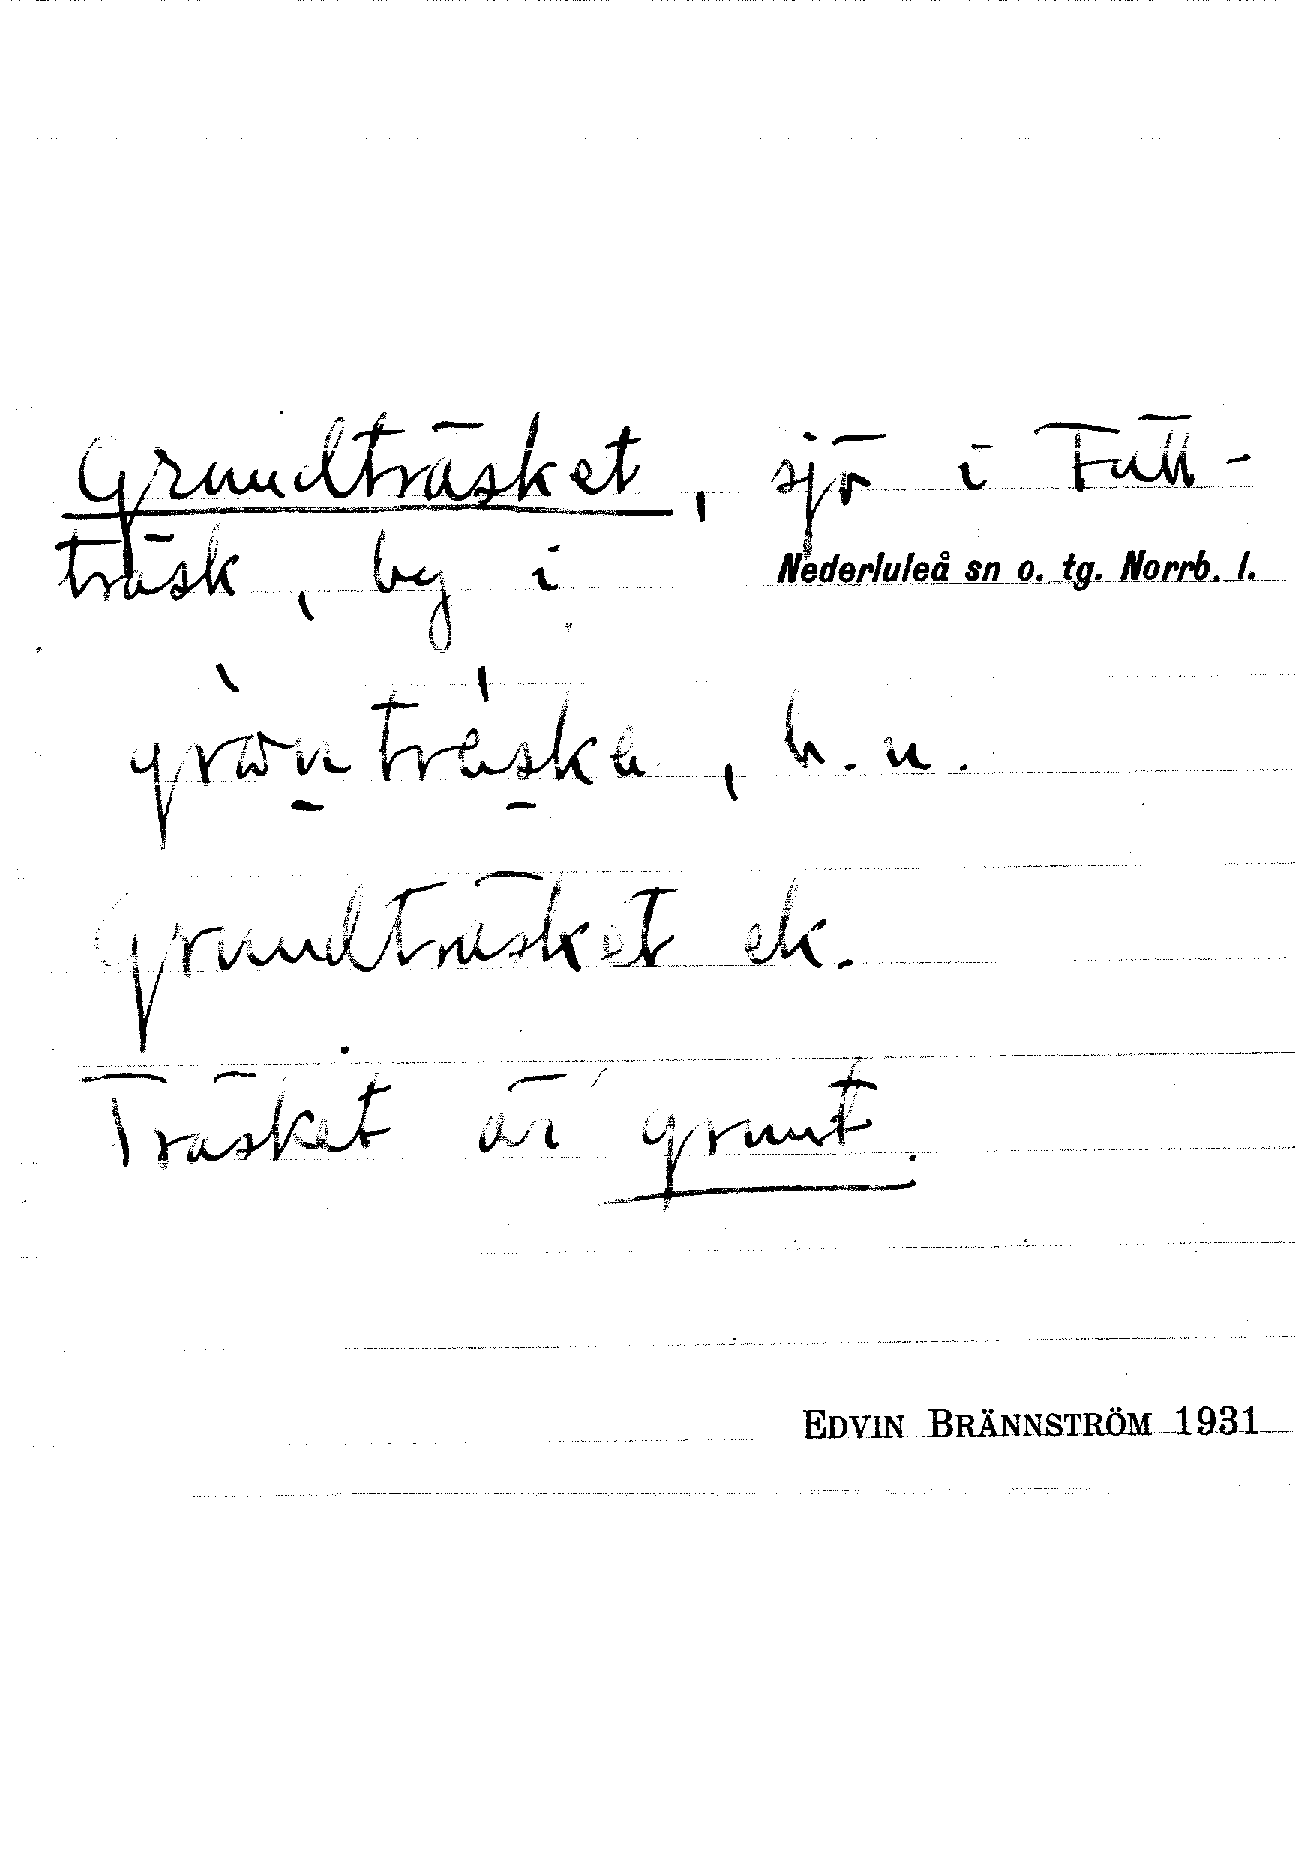 Grundträsket, sjö i Fält-
träsk, by i Nederluleå sn o. tg. Norrb. l.
h. u.
Grundträsket ek.
Träsket är grunt.
EDVIN BRÄNNSTRÖM 1931